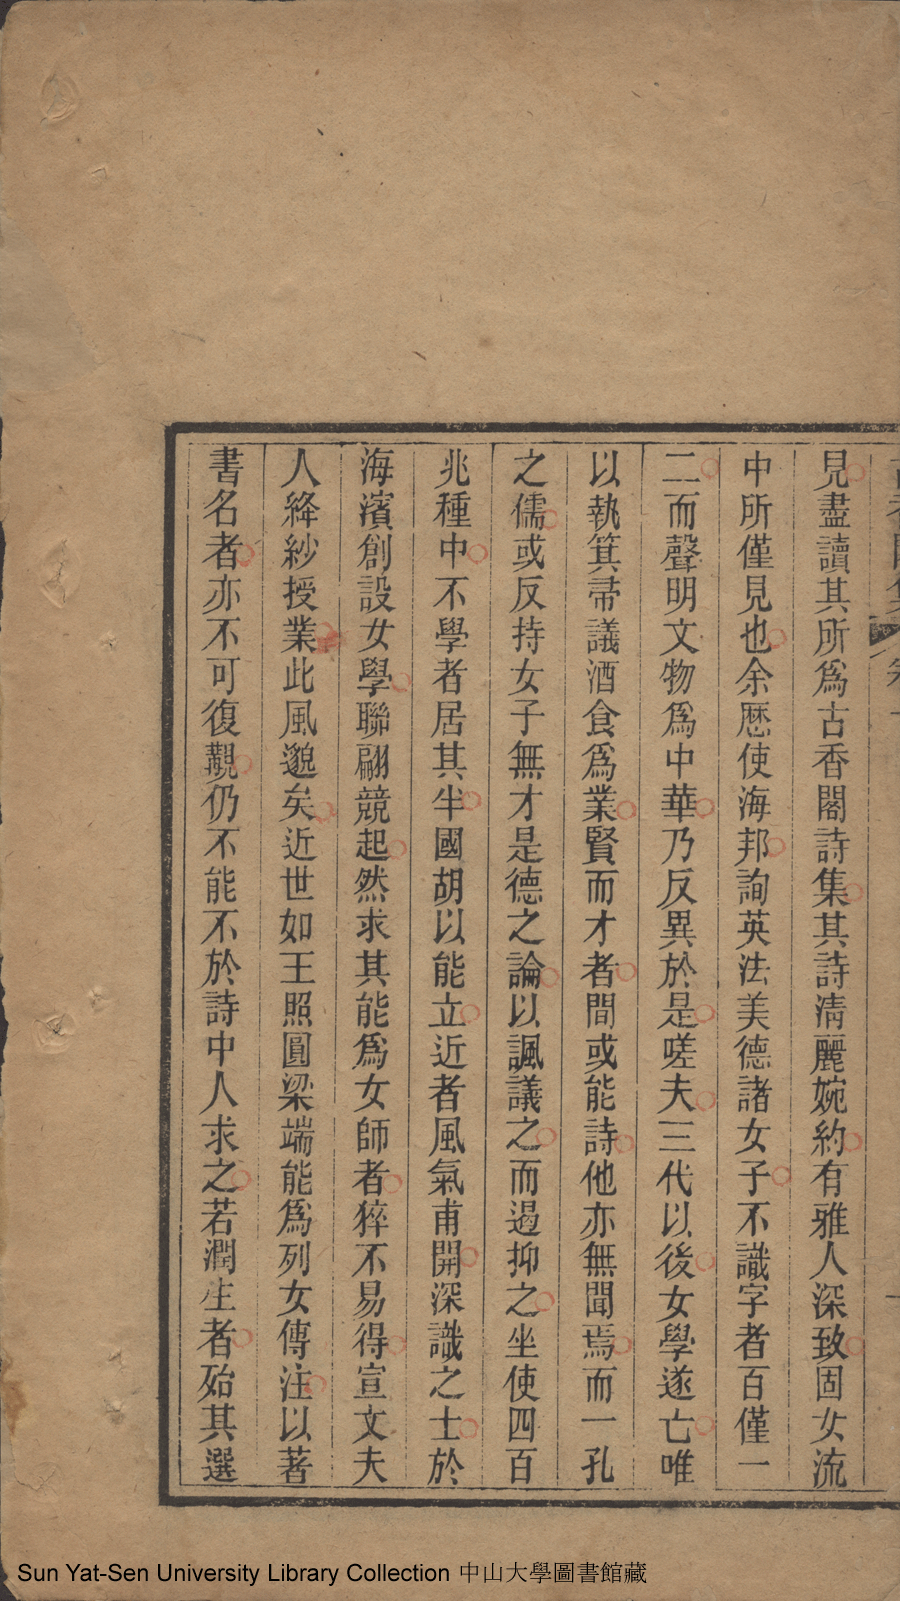 見盡讀其所爲古香閣詩集其詩清麗婉約有雅人深致固女流
中所僅見也余歷使海邦詢英法美德諸女子不識字者百僅一
二而聲明文物爲中華乃反異於是嗟夫三代以後女學遂亡唯
以執箕帚議酒食爲業賢而才者間或能詩他亦無聞焉而一孔
之儒或反持女子無才是德之論以諷議之而遏抑之坐使四百
兆種中不學者居其半國胡以能立近者風氣甫開深識之士於
海濱創設女學聯翩競起然求其能爲女師者猝不易得宣文夫
人絳紗授業此風邈矣近世如王照圓梁端能爲列女傳注以著
書名者亦不可復覯仍不能不於詩中人求之若潤生者殆其選
Sun Yat-Sen University Library Collection 中山大學圖書館藏